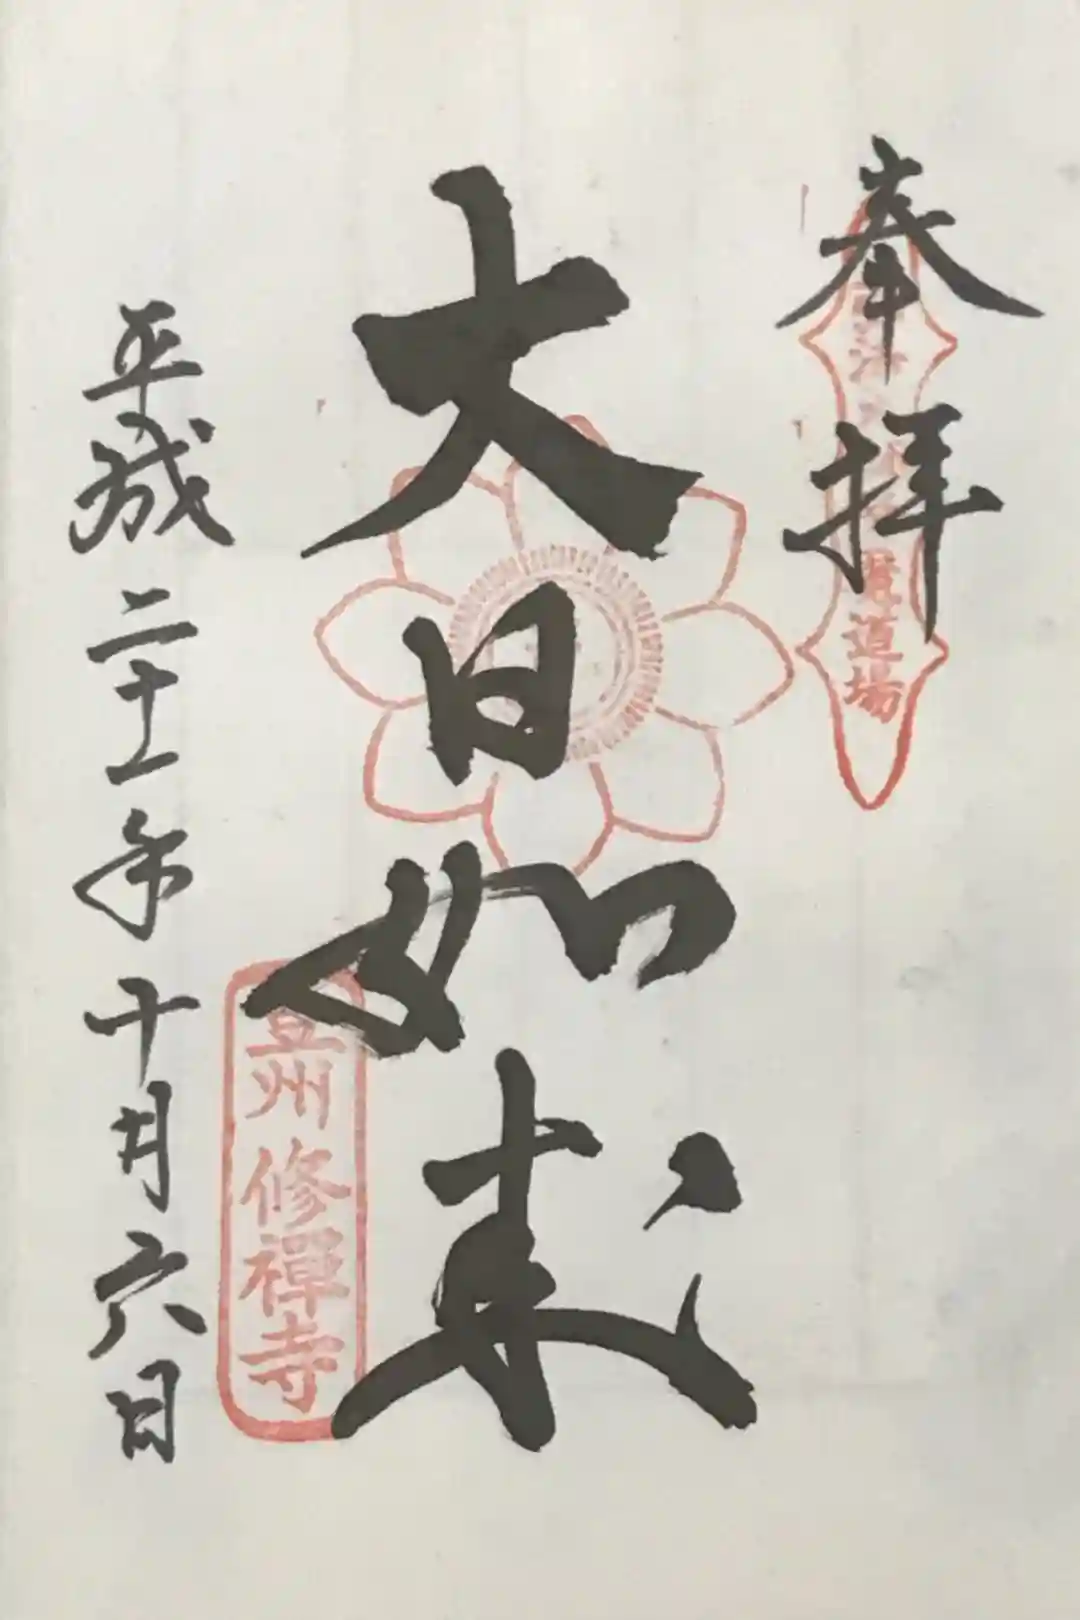 奉拝
道場
大日如来
豆州修禪寺
平成二十一年十月六日